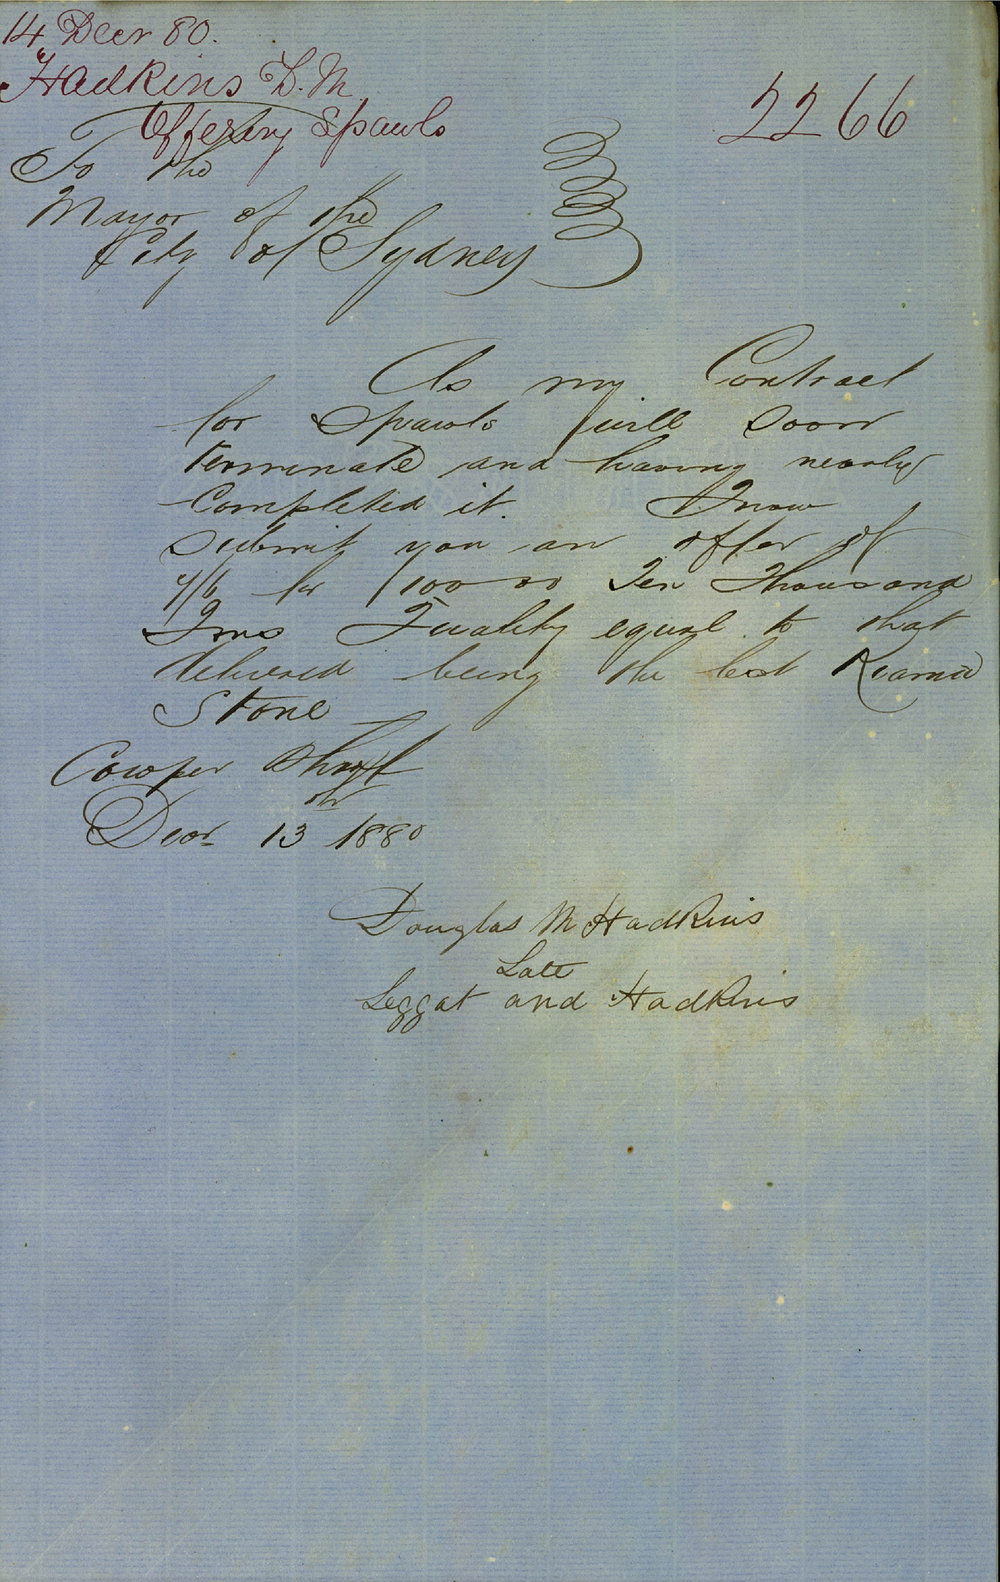 14 Decr 80.
Hadkins D. M
Offering Spawls
2266
To the
Mayor of the
City of Sydney
As my Contract
for Spawls will soon
terminate and having nearly
Completed it. I now
submit you an offer of
4/6 for 10000 Ten Thousand
Tons Quality equal to that
delivered being the best Kiama
Stone
Cowper Wharf
Decr 13th 1880
Douglas M Hadkins
Late
Leggat and Hadkins